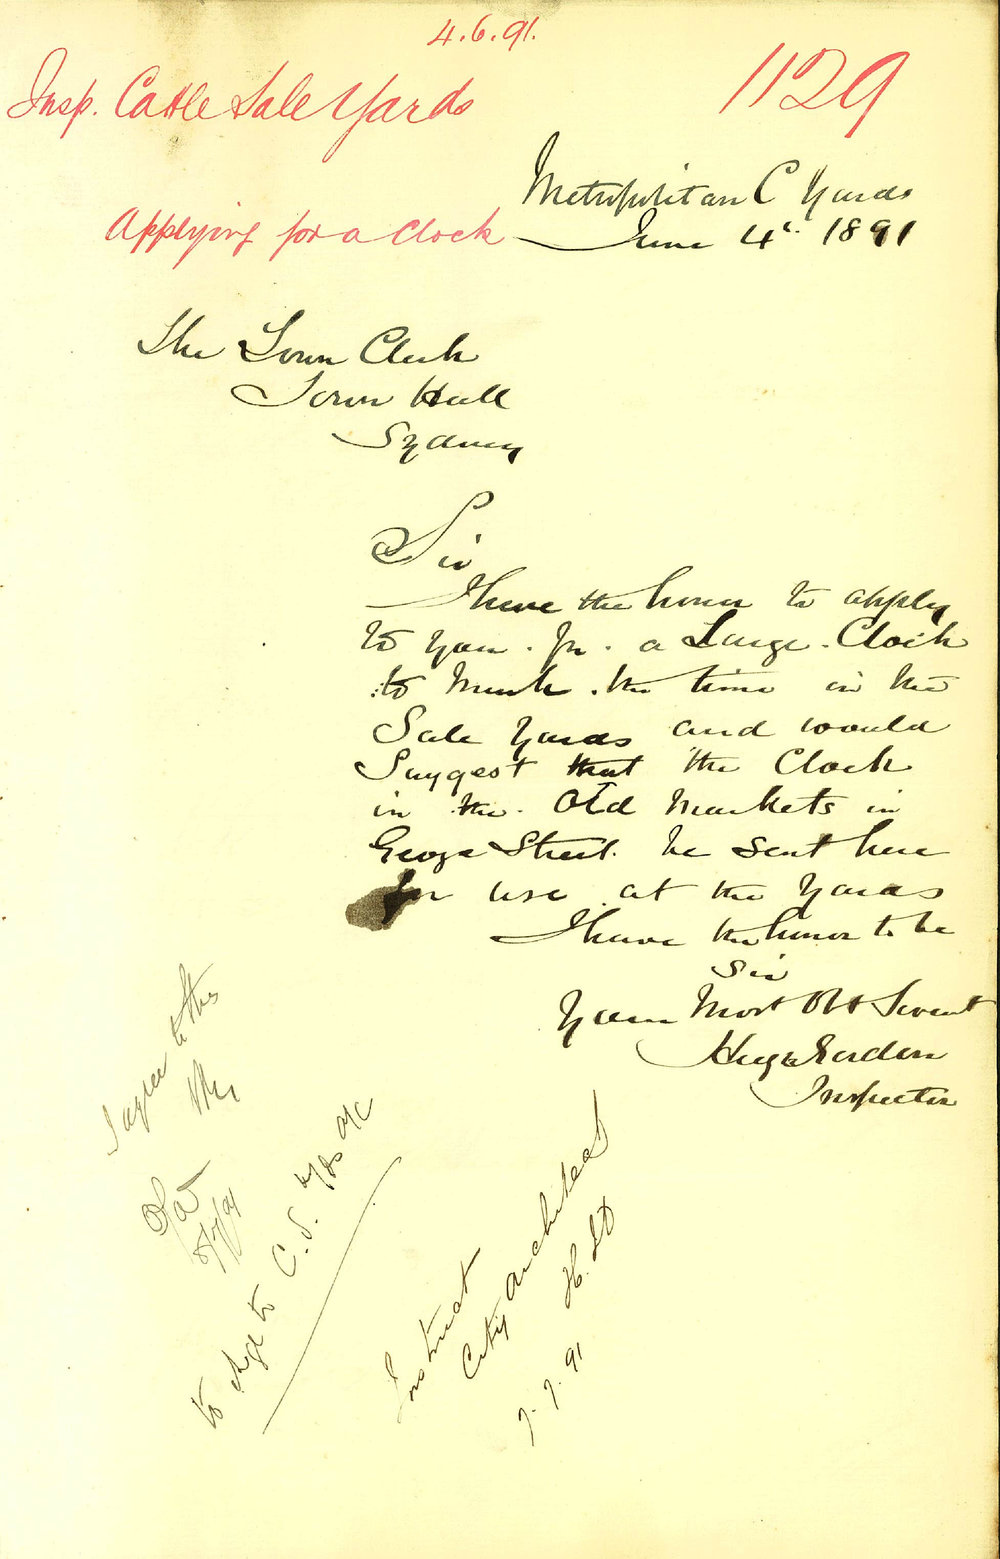 4.6.91.
Insp. Cattle Sale Yards
1129
Metropolitan C Yards
Applying for a clock
June 4th 1891
The Town Clerk
Town Hall
Sydney
Sir
I have the honor to apply
to you for a Large Clock
to Mark the time in the
Sale Yards and would
Suggest that the Clock
in the Old Markets in
George Street be sent here
for use at the Yards
I have the honor to be
Sir
Your Most Obt Servant
Hugh Gordon
Inspector
I agree to this
to chge to C.S. Yds a/c
Instruct
City Architect
7.7.91